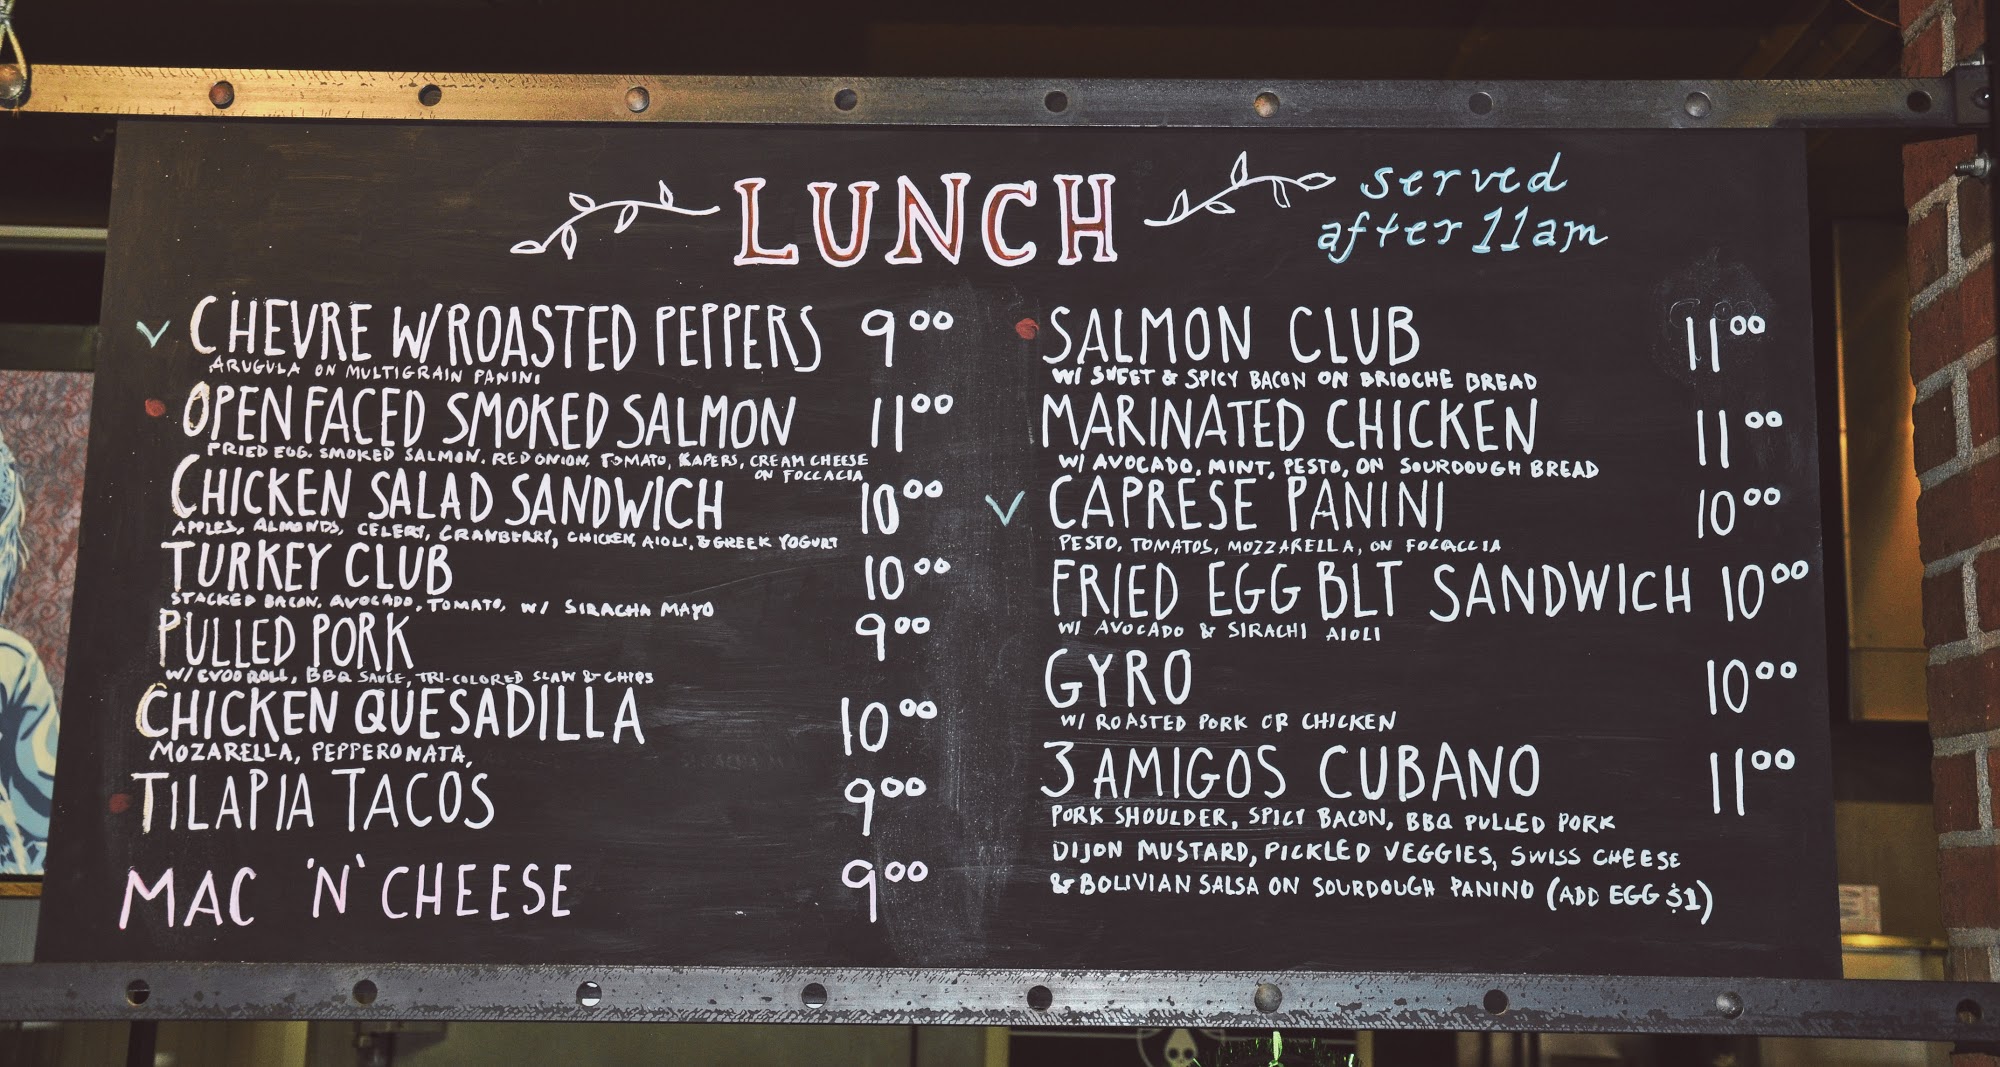 LUNCH
served
after 11am
V CHEVRE W/ROASTED PEPPERS 9⁰⁰
ARUGULA ON MULTIGRAIN PANINI
OPEN FACED SMOKED SALMON 11⁰⁰
FRIED EGG. SMOKED SALMON. RED ONION, TOMATO, KAPERS, CREAM CHEESE
ON FOCCACIA
CHICKEN SALAD SANDWICH 10⁰⁰
APPLES, ALMONDS, CELERY, CRANBERRY, CHICKEN, AIOLI, & GREEK YOGURT
TURKEY CLUB 10⁰⁰
STACKED BACON, AVOCADO, TOMATO, W/ SIRACHA MAYO
PULLED PORK 9⁰⁰
W/ EVOO ROLL, BBQ SAUCE, TRI-COLORED SLAW & CHIPS
CHICKEN QUESADILLA 10⁰⁰
MOZARELLA, PEPPERONATA,
TILAPIA TACOS 9⁰⁰
MAC 'N' CHEESE 9⁰⁰
SALMON CLUB 11⁰⁰
W/ SWEET & SPICY BACON ON BRIOCHE BREAD
MARINATED CHICKEN 11⁰⁰
W/ AVOCADO, MINT, PESTO, ON SOURDOUGH BREAD
V CAPRESE PANINI 10⁰⁰
PESTO, TOMATOS, MOZZARELLA, ON FOCACCIA
FRIED EGG BLT SANDWICH 10⁰⁰
W/ AVOCADO & SIRACHI AIOLI
GYRO 10⁰⁰
W/ ROASTED PORK OR CHICKEN
3 AMIGOS CUBANO 11⁰⁰
PORK SHOULDER, SPICY BACON, BBQ PULLED PORK
DIJON MUSTARD, PICKLED VEGGIES, SWISS CHEESE
& BOLIVIAN SALSA ON SOURDOUGH PANINO (ADD EGG $1)